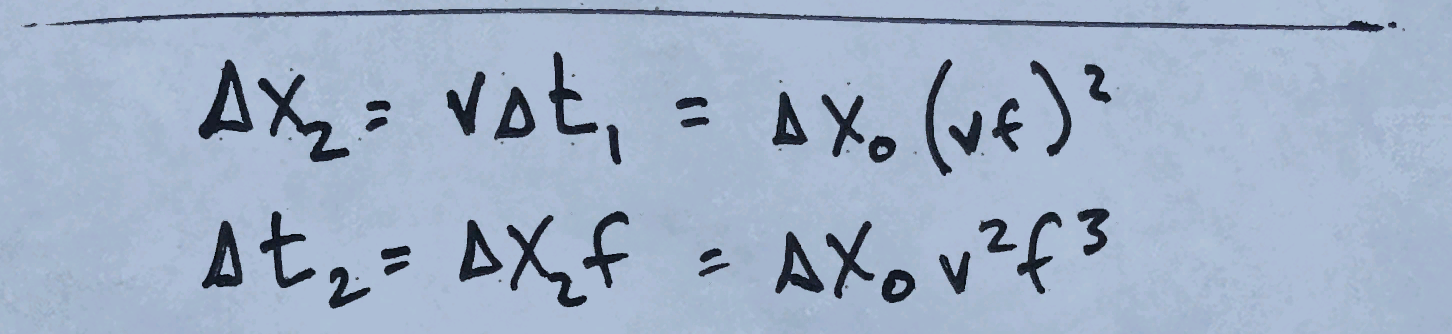 Δx₂ = vΔt₁ = Δx₀(vf)²
Δt₂ = Δx₂f = Δx₀v²f³